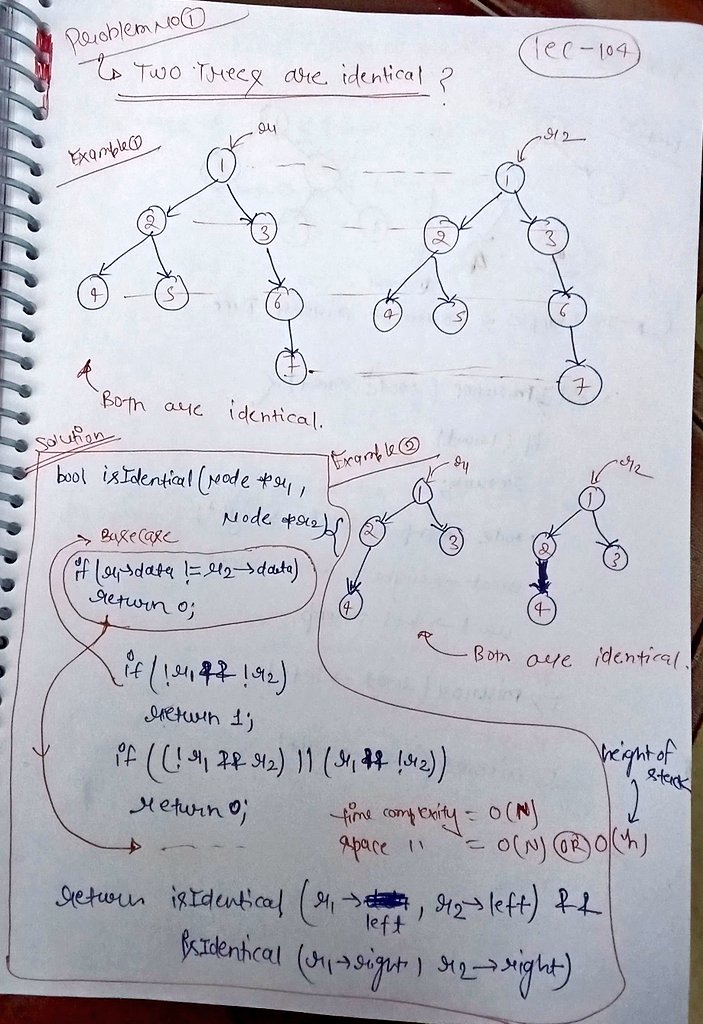 Problem No ①
Lec-104
Two Trees are identical ?
Example ①
r1
r2
1
1
2
3
2
3
4
5
6
4
5
6
7
7
Both are identical.
Solution
Example ②
r1
r2
1
1
2
3
2
3
4
4
Both are identical.
bool isIdentical (Node *r1,
Node *r2) {
Base Case
if (r1→data != r2→data)
return 0;
if (!r1 && !r2)
return 1;
if ((!r1 && r2) || (r1 && !r2))
return 0;
height of
stack
time complexity = O(N)
space " = O(N) OR O(h)
return isIdentical (r1→left, r2→left) &&
isIdentical (r1→right, r2→right)